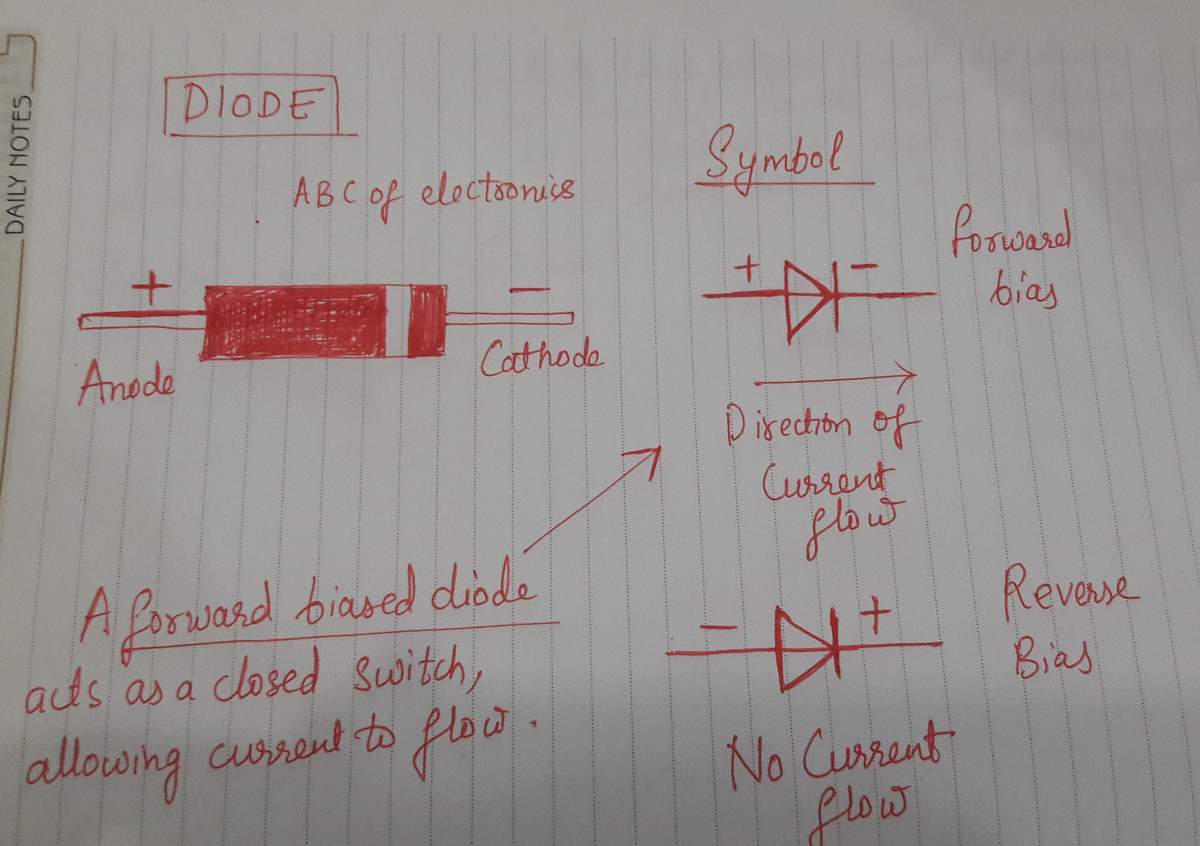 DAILY NOTES
DIODE
ABC of electronics
+
-
Anode
Cathode
Symbol
+ -
forward
bias
Direction of
Current
flow
A forward biased diode
acts as a closed switch,
allowing current to flow.
- +
Reverse
Bias
No Current
flow